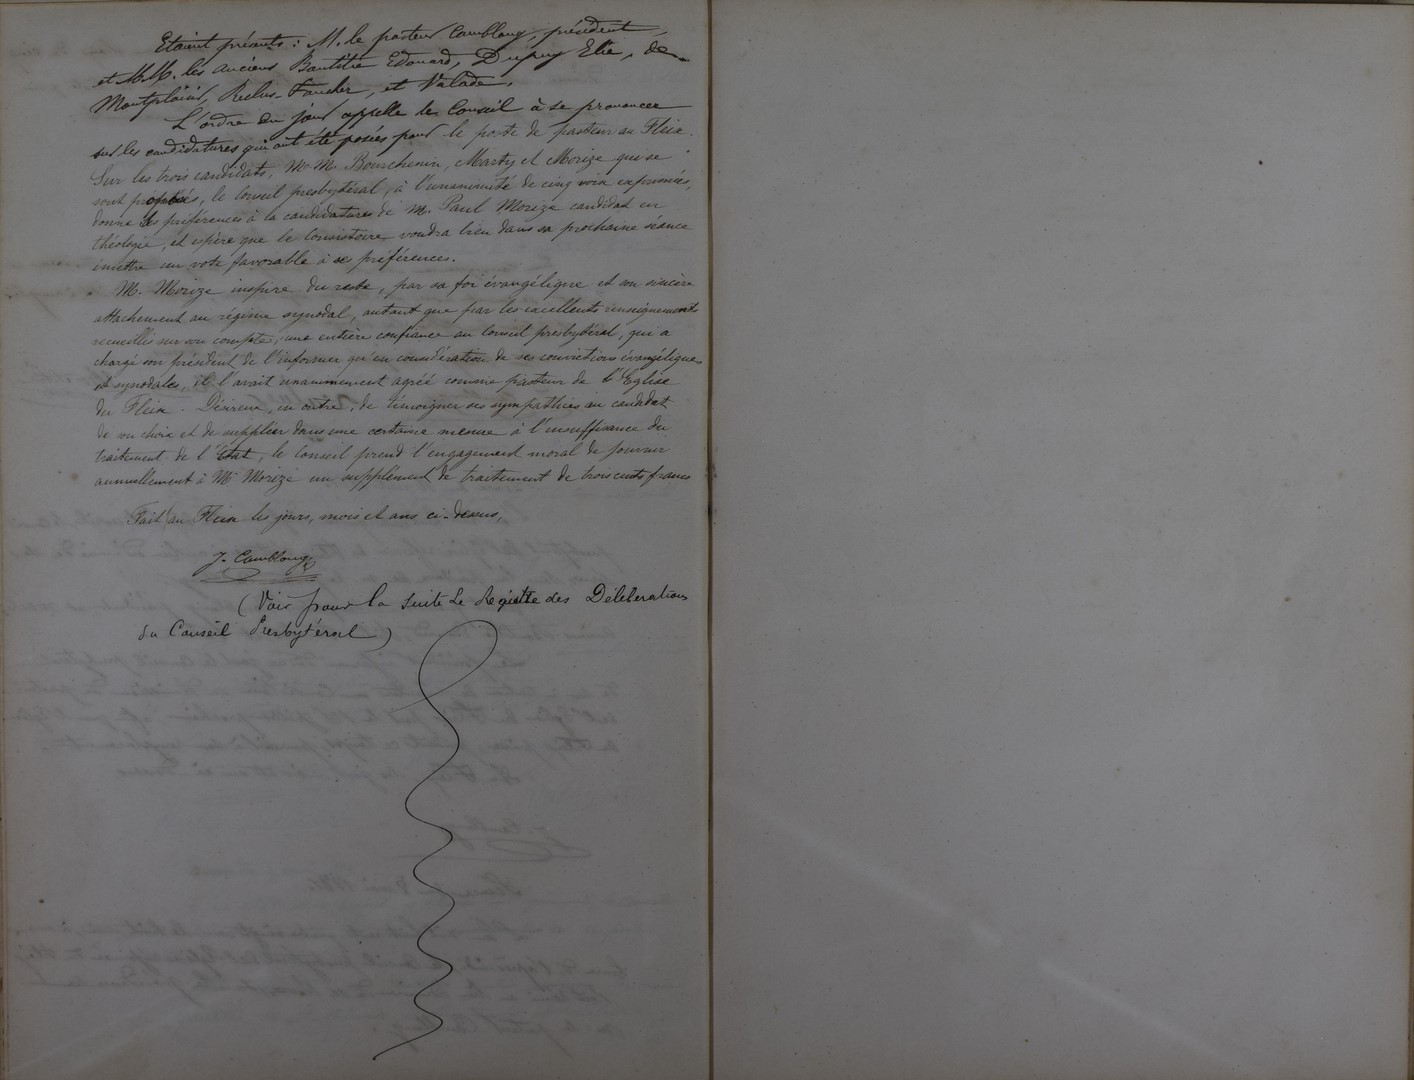 Etaient présents : M. le pasteur Camblong, président,
et MM. les anciens Bautitre Edouard, Dupuy Elie, de
Montplaisir, Reclus-Faucher, et Valade.
L'ordre du jour appelle le Conseil à se prononcer
sur les candidatures qui ont été posées pour le poste de pasteur au Fleix.
Sur les trois candidats, MM. Bourchenin, Marty et Morize qui se
sont proposés, le Conseil presbytéral, à l'unanimité de cinq voix exprimées,
donne les préférences à la candidature de M. Paul Morize candidat en
théologie, et espère que le Consistoire voudra bien dans sa prochaine séance
émettre un vote favorable à ses préférences.
M. Morize inspire du reste, par sa foi évangélique et son sincère
attachement au régime synodal, autant que par les excellents renseignements
recueillis sur son compte, une entière confiance au Conseil presbytéral, qui a
chargé son président de l'informer qu'en considération de ses convictions évangéliques
et synodales, il l'avait unanimement agréé comme pasteur de l'Eglise
du Fleix. Désireux, en outre, de témoigner ses sympathies au candidat
de son choix et de suppléer dans une certaine mesure à l'insuffisance du
traitement de l'Etat, le Conseil prend l'engagement moral de fournir
annuellement à Mr Morize un supplément de traitement de trois cents francs
Fait au Fleix les jours, mois et ans ci-dessus,
J. Camblong
(Voir pour la suite Le Registre des Délibérations
du Conseil Presbytéral)